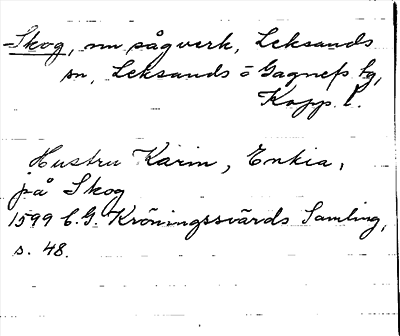 Skog, nu sågverk, Leksands
sn, Leksands o Gagnefs tg,
Kopp. l.
Hustru Karin, Enkia,
på Skog
1599 C.G. Kröningssvärds Samling,
s. 48.